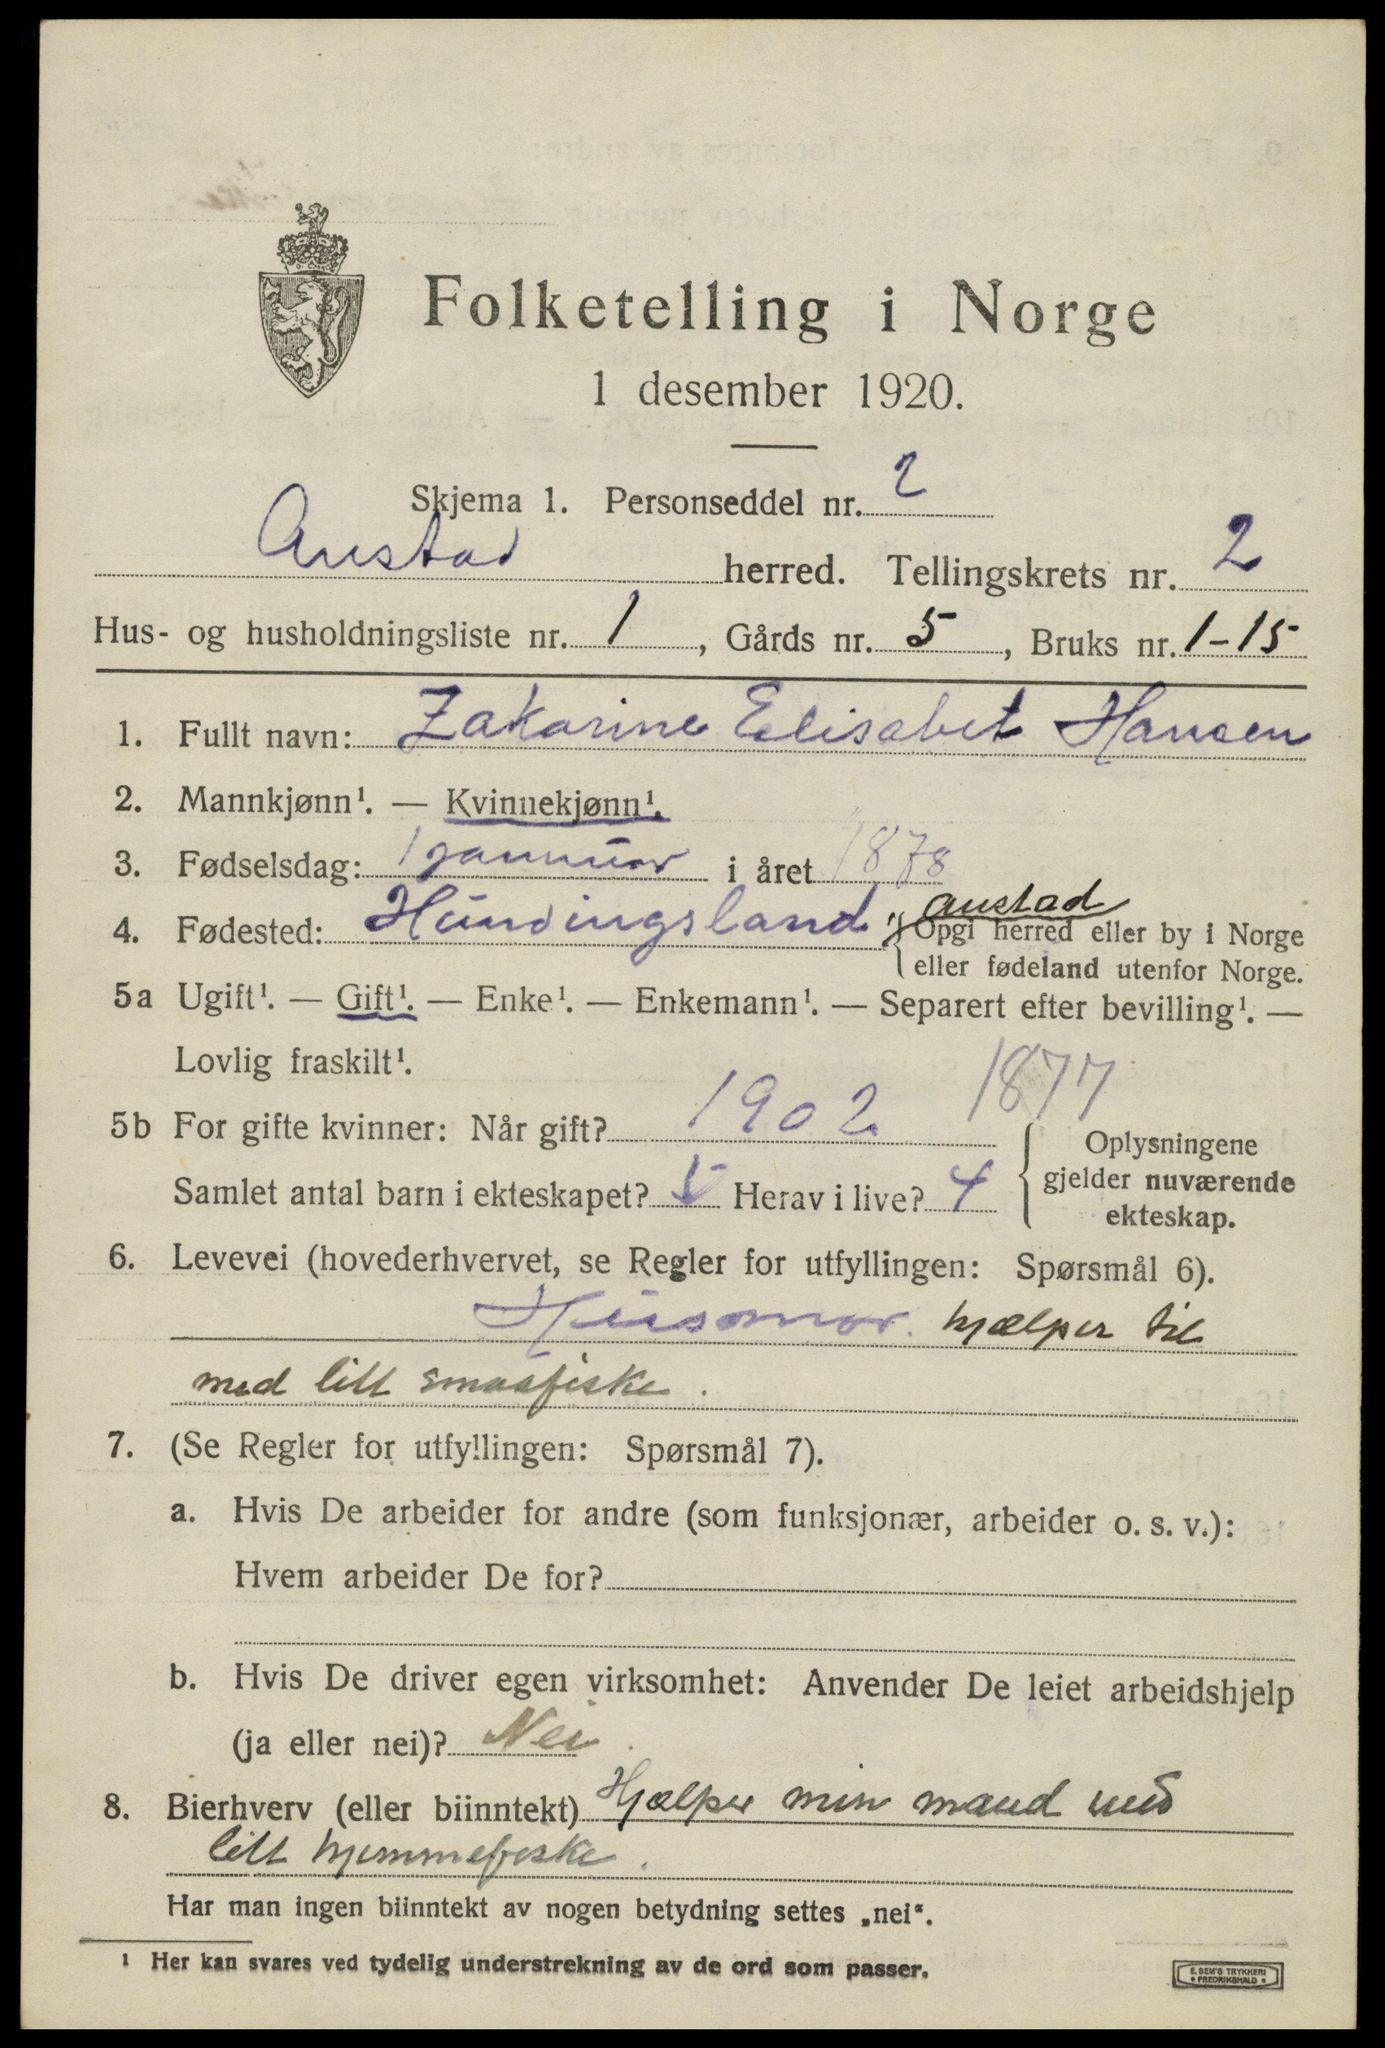 Folketelling i Norge
1 desember 1920.
Skjema 1. Personseddel nr. 2
Austad herred. Tellingskrets nr. 2
Hus- og husholdningsliste nr. 1, Gårds nr. 5, Bruks nr. 1-15
1. Fullt navn: Zakarine Elisabet Hansen
2. Mannkjønn¹. — Kvinnekjønn¹.
3. Fødselsdag: 1 januar i året 1878
4. Fødested: Hundingsland { Austad
Opgi herred eller by i Norge
eller fødeland utenfor Norge.
5a Ugift¹. — Gift¹. — Enke¹. — Enkemann¹. — Separert efter bevilling¹. —
Lovlig fraskilt¹.
1877
5b For gifte kvinner: Når gift? 1902
Samlet antal barn i ekteskapet? 5 Herav i live? 4
{ Oplysningene
gjelder nuværende
ekteskap.
6. Levevei (hovederhvervet, se Regler for utfyllingen: Spørsmål 6).
Husmor. hjælper til
med litt smaafiske.
7. (Se Regler for utfyllingen: Spørsmål 7).
a. Hvis De arbeider for andre (som funksjonær, arbeider o. s. v.):
Hvem arbeider De for?
b. Hvis De driver egen virksomhet: Anvender De leiet arbeidshjelp
(ja eller nei)? Nei.
8. Bierhverv (eller biinntekt) Hjælper min mand med
litt hjemmefiske.
Har man ingen biinntekt av nogen betydning settes „nei“.
¹ Her kan svares ved tydelig understrekning av de ord som passer.
E. SEM'S TRYKKERI
• FREDRIKSHALD •